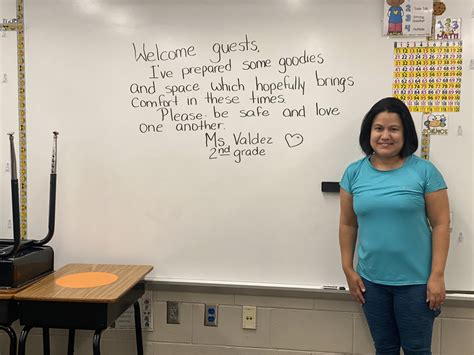 Welcome guests,
I've prepared some goodies
and space which hopefully brings
comfort in these times.
Please be safe and love
one another.
Ms. Valdez
2nd grade
MATH
SCIENCE